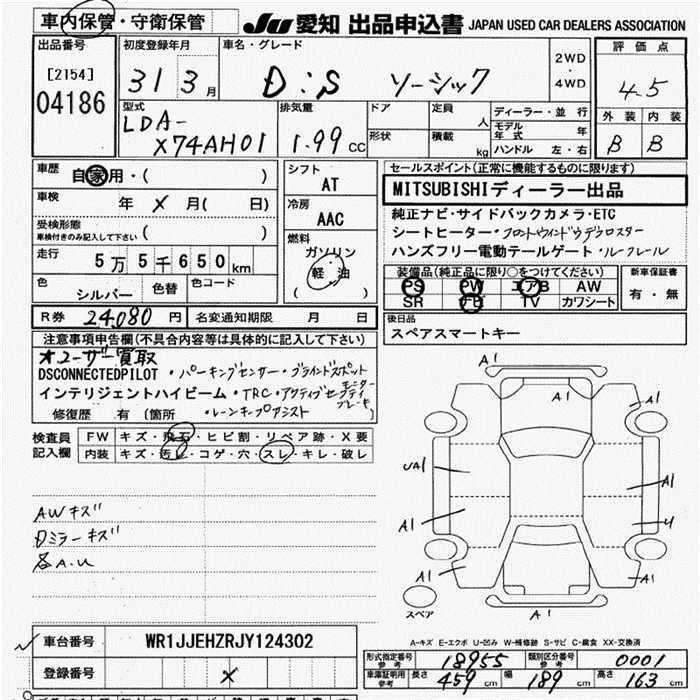 車内保管・守衛保管
JU 愛知 出品申込書 JAPAN USED CAR DEALERS ASSOCIATION
出品番号
[2154]
04186
初度登録年月
31 3 月
車名・グレード
D:5 ソーシック
2WD
・
4WD
評価点
4.5
外装 内装
B B
型式
LDA-
X74AH01
排気量
1.99 CC
ドア
形状
定員 人
積載 kg
ディーラー・並行
モデル年式 年
ハンドル 左・右
車歴
自家用・( )
車検 年 メ 月( 日)
受検形態
車検付きのみ記入して下さい( )
走行
5万5千650km
色 シルバー 色替 色コード
シフト
AT
冷房
AAC
燃料
ガソリン
軽油
( )
セールスポイント(正常に機能するものに限ります)
MITSUBISHIディーラー出品
純正ナビ・サイドバックカメラ・ETC
シートヒーター・フロントウインドウデフロスター
ハンズフリー電動テールゲート・ルーフレール
装備品(純正品に限り○をつけてください)
PS PW エアB AW
SR TV カワシート
新車保証書
有・無
R券 24,080 円 名変通知期限 月 日
後日品
スペアスマートキー
注意事項申告欄(不具合内容等は具体的に記入して下さい)
オユーザー買取
DSCONNECTEDPILOT・パーキングセンサー・ブラインドスポットモニター
インテリジェントハイビーム・TRC・アクティブセーフティブレーキ
修復歴 有(箇所 ・レーンキープアシスト
検査員
記入欄
FW キズ・飛石・ヒビ割・リペア跡・X要
内装 キズ・汚レ・コゲ・穴・スレ・キレ・破レ
AWキズ
Dミラーキズ
各A.U
A1
A1
A1
UA1
A1
A1
U
A1
A1
A1
スペア
A-キズ E-エクボ U-凹み W-補修跡 S-サビ C-腐食 XX-交換済
車台番号 WR1JJEHZRJY124302
登録番号 メ
形式指定番号 参考 18955 類別区分番号 参考 0001
車庫証明用 参考 長さ 459 cm 幅 189 cm 高さ 163 cm